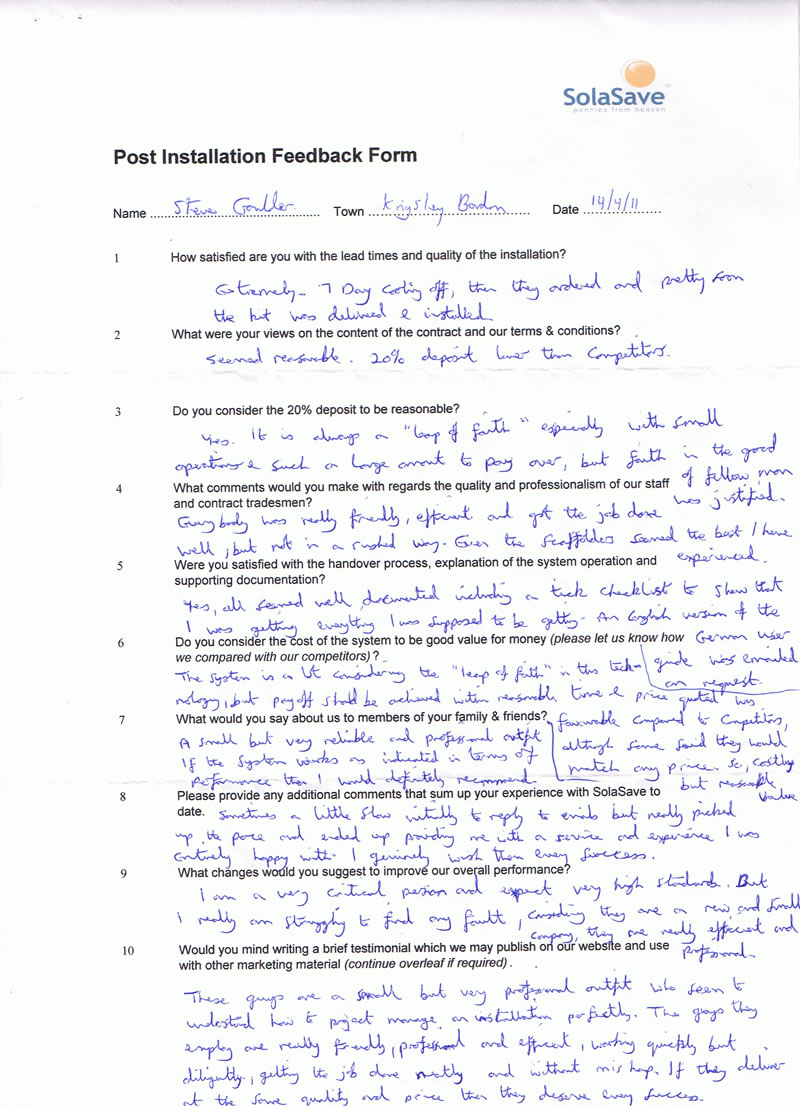 SolaSave™
pennies from heaven
Post Installation Feedback Form
Name Steve Town Kingsley Bordon Date 14/4/11
1 How satisfied are you with the lead times and quality of the installation?
Extremely - 7 Day cooling off, then they ordered and pretty soon
the kit was delivered & installed
2 What were your views on the content of the contract and our terms & conditions?
Seemed reasonable. 20% deposit lower than competitors.
3 Do you consider the 20% deposit to be reasonable?
Yes. It is always a "leap of faith" especially with small
operations & such a large amount to pay over, but faith in the good
of fellow man
was justified.
4 What comments would you make with regards the quality and professionalism of our staff
and contract tradesmen?
Everybody was really friendly, efficient and got the job done
well, but not in a rushed way. Even the scaffolders seemed the best I have
experienced.
5 Were you satisfied with the handover process, explanation of the system operation and
supporting documentation?
Yes, all seemed well documented including a tick checklist to show that
I was getting everything I was supposed to be getting. An English version of the
German user
guide was emailed
on request.
6 Do you consider the cost of the system to be good value for money (please let us know how
we compared with our competitors)?
The system is a lot considering the "leap of faith" in this tech-
nology, but payoff should be achieved within reasonable time & price quoted was
favourable compared to competitors,
although some said they would
match any price. So, costly
but reasonable
value
7 What would you say about us to members of your family & friends?
A small but very reliable and professional outfit
If the system works as indicated in terms of
performance then I would definitely recommend.
8 Please provide any additional comments that sum up your experience with SolaSave to
date. Sometimes a little slow initially to reply to emails but really picked
up the pace and ended up providing me with a service and experience I was
entirely happy with. I genuinely wish them every success.
9 What changes would you suggest to improve our overall performance?
I am a very critical person and expect very high standards. But
I really am struggling to find any fault, considering they are a new and small
company, they are really efficient and
professional.
10 Would you mind writing a brief testimonial which we may publish on our website and use
with other marketing material (continue overleaf if required).
These guys are a small but very professional outfit who seem to
understand how to project manage an installation perfectly. The guys they
employ are really friendly, professional and efficient, working quickly but
diligently, getting the job done neatly and without mishap. If they deliver
at the same quality and price then they deserve every success.